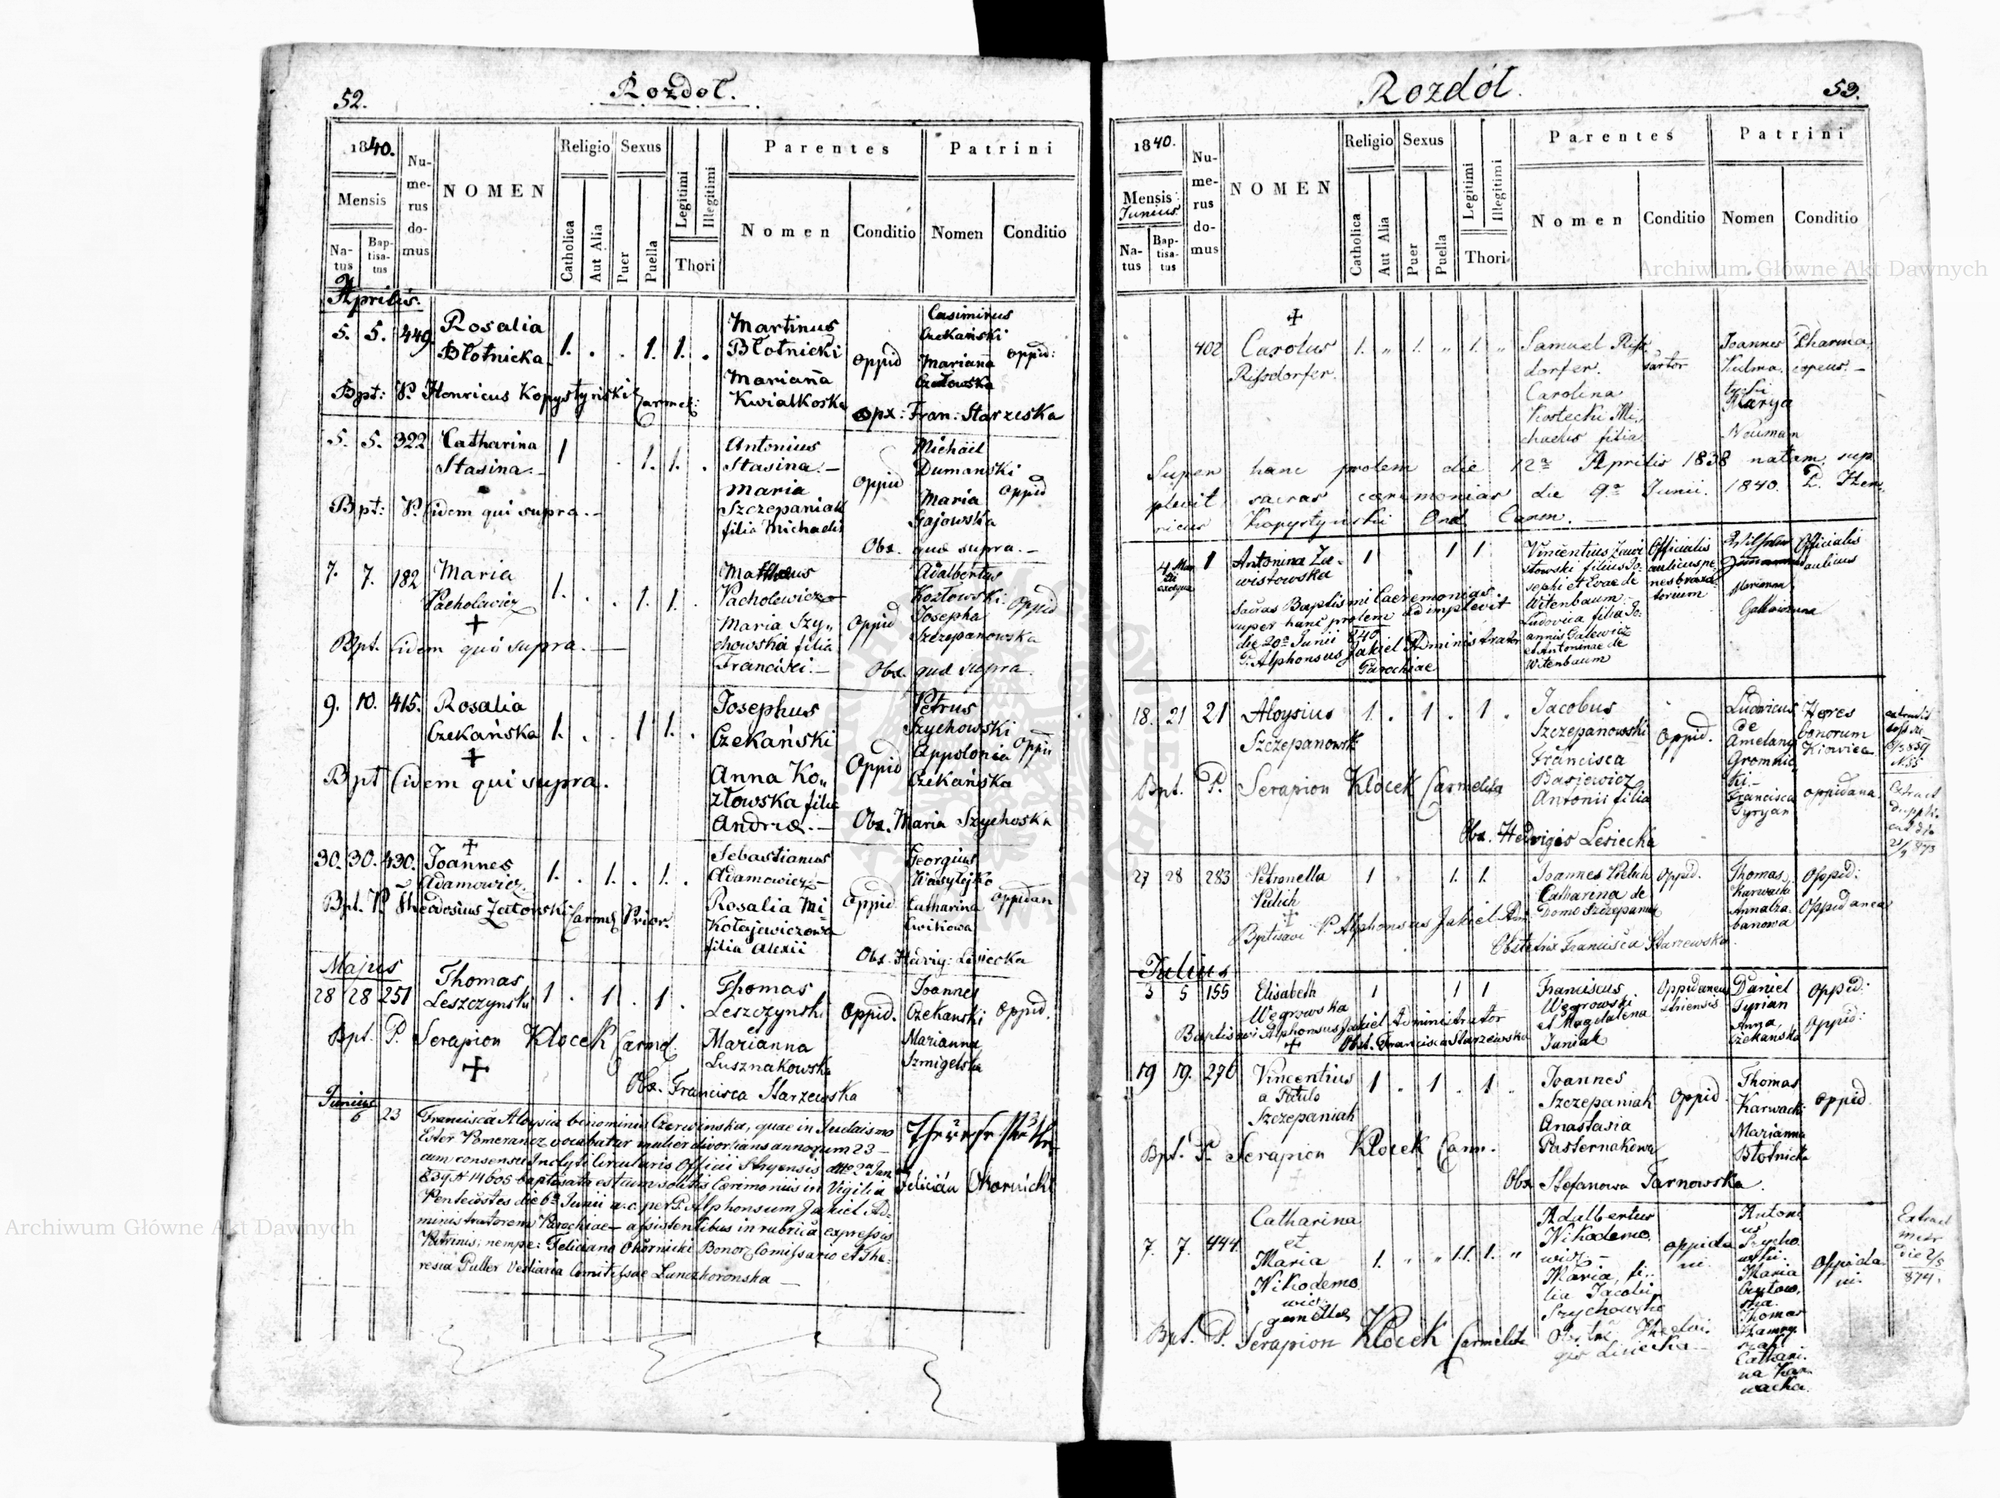 52.
Rozdoł.
1840.
Mensis
Natus
Baptisatus
Numerus domus
NOMEN
Religio
Catholica
Aut Alia
Sexus
Puer
Puella
Legitimi
Illegitimi
Thori
Parentes
Nomen
Conditio
Patrini
Nomen
Conditio
Aprilis.
5. 5. 449 Rosalia Błotnicka 1. . . 1. 1. .
Martinus
Błotnicki
Marianna
Kwialkoska
oppid
Casimirus
Czekański
Marianna
oppid:
Bpt: P. Henricus Kopystyński Carmel:
opx: Fran: Starzeska
5. 5. 322 Catharina Stasina.- 1 . 1. 1. .
Antonius
Stasina.-
Maria
Szczepaniak
filia Michaelis
oppid
Michäel
Dumanski
Maria
Gajowska
oppid
Bpt: P. idem qui supra.-
Obx. quæ supra.-
7. 7. 182 Maria Pacholewicz 1. . . 1. 1. .
Pacholewicz
Maria Szy„
chowska filia
Francisci.-
oppid
Adalbertus
Kozłowski
Josepha
Szczepanowska
oppid
Bpt. idem qui supra.
Obx. quæ supra.
9. 10. 415. Rosalia Czekańska 1. . . 1 1. .
Josephus
Czekański
Anna Ko„
złowska filia
Andreæ.-
Oppid
Petrus
Szychowski
Appolonia
Czekańska
Bpt idem qui supra.
Obx. Maria Szychoska
30. 30. 430. Joannes Adamowicz. 1. . 1. . 1. .
Sebastianus
Adamowicz-
Rosalia Mi
Kołajewiczowa
filia Alexii
Oppid
Georgius
Wasylejko
Catharina
Cwikowa
oppidan
Bpt. P. Theodosius Zatonski Carmel Prior.
Obx. Hedvig: Lesiecka
Majus
28 28 251 Thomas Leszczynski 1 . 1 . 1 .
Thomas
Leszczynski
et
Marianna
Lusznakowska
Oppid.
Joannes
Czekanski
Marianna
Szmigelska
oppid.
Bpt. P. Serapion Klocek Carmel.
Obx. Francisca Starzewska
Junius
6 23
Francisca Aloysia binominis Czerwinska, quæ in Judaismo
Ester Pomeranz vocabatur mulier divortians annorum 23 -
cum consensu Inclyti Circularis Officii Stryensis
14605 baptisata est cum solitis Cerimoniis in Vigilia
Pentecostes die 6ª Junii a.c. per P. Alphonsum Jakiel Ad-
ministratorem Parochiae- assistentibus in rubrica expressis
Patrinis; nempe: Feliciano Okornicki Bonor. Comissario et The-
resia Puller Vestiaria Comitissae Lanczkoronska -
Felician Okornicki
Rozdół.
53.
1840.
Mensis
Junius
Natus
Baptisatus
Numerus domus
NOMEN
Religio
Catholica
Aut Alia
Sexus
Puer
Puella
Legitimi
Illegitimi
Thori
Parentes
Nomen
Conditio
Patrini
Nomen
Conditio
402 Carolus Rissdorfer. 1. „ 1. „ 1. „
Samuel Riss
dorfer.
Carolina
Kostecki Mi„
chaelis filia
sartor
Joannes
Kulma.
tycki
Marya
Neumann
Pharma„
copeus.-
Super hanc prolem die 12ª Aprilis 1838 natam, sup
plevit sacras cæremonias die 9ª Junii. 1840. P. Hen„
ricus Kopystyński Ord. Carm.
1 Antonina Za-
wistowska 1 1 1
Vincentius Zawi
stowski filius Jo-
sephi et Evae de
Witenbaum -
Ludovica filia Jo-
annis Galewicz
et Antoninae de
Witenbaum
Officialis
aulicus
Marianna
Officialis
aulicus
Sacras Baptismi Caeremonias
super hanc prolem adimplevit
die 20ª Junii 840
P. Alphonsus Jakiel Administrator
Parochiae
18. 21 21 Aloysius Szczepanowsk 1. . 1 . 1 .
Jacobus
Szczepanowski
Francisca
Basjewicz
Antonii filia
oppid.
Ludovicus
de
Amelang
Gromnic
ki-
Francisca
Tyryan
Heres
bonorum
Kiowiec
oppidana.
Bpt. P. Serapion Klocek Carmelita
Obx. Hedvigis Lesiecka
27 28 283 Petronella 1 1 1
Joannes
Catharina de
Domo Szczepaniak
Oppid.
Thomas
Karwacki
Anna
oppid:
Oppidanea
Baptisavi P. Alphonsus Jakiel
Obstetrix Francisca Starzewska.
Julius
5 5 155 Elisabeth Węgrowska 1 1 1
Franciscus
Węgrowski
et Magdalena
Juniak
Oppidaneus
Striensis
Daniel
Tyrian
Anna
Czekańska
oppid:
oppid:
Baptisavi Alphonsus Jakiel Administrator
Obst. Francisca Starzewska
19 19. 276 Vincentius a Paulo Szczepaniak 1 . 1 . 1 .
Joannes
Szczepaniak
Anastasia
Pasternakowa
oppid
Thomas
Karwacki
Marianna
Błotnicka
oppid.
Bpt. P. Serapion Klocek Carm.
Obx Stefanowa Tarnowska.
7. 7. 444. Catharina et Maria Nikodemo wicz gemellae 1. „ „ 11 1. „
Adalbertus
Nikodemo„
wicz -
Maria, fi„
lia Jacobi
Szychowski
oppida
ni.
Antoni
us
Szycho
wski.
Maria
Thomas
Cathari
na Kar
wacka.
oppida
ni.
Bpt. P. Serapion Klocek Carmelita
Archiwum Główne Akt Dawnych
Archiwum Główne Akt Dawnych